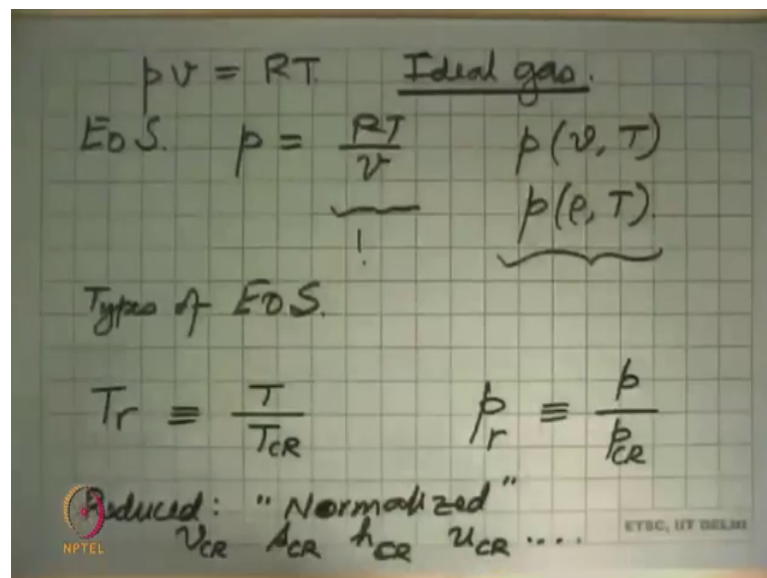 pv = RT. Ideal gas.
EOS. p = RT/v p(v, T)
p(ρ, T).
!
Types of EOS.
Tr ≡ T/TCR pr ≡ p/pCR
Reduced: "Normalized"
vCR sCR hCR uCR ....
NPTEL
ETSC, IIT DELHI